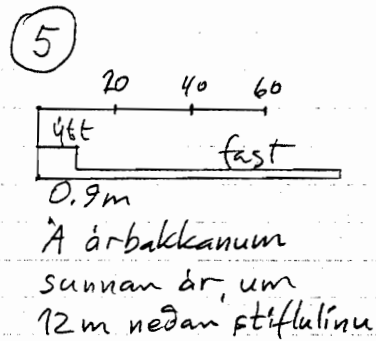 5
20 40 60
ýtt
fast
0.9m
Á árbakkanum
sunnan ár, um
12m neðan stíflulínu